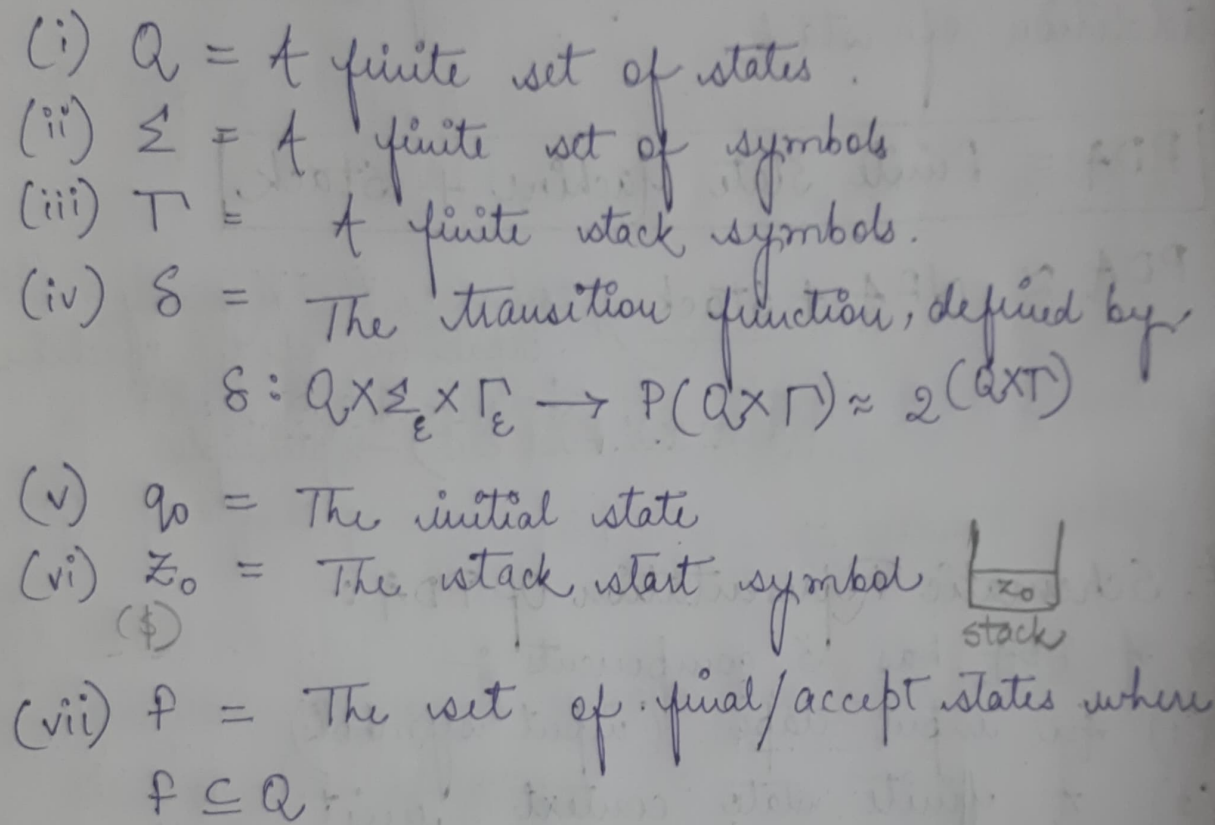 (i) Q = A finite set of states.
(ii) Σ = A finite set of symbols
(iii) Γ = A finite stack symbols.
(iv) δ = The transition function, defined by,
δ : Q×Σ_ε×Γ_ε → P(Q×Γ) ≈ 2^(Q×Γ)
(v) q₀ = The initial state
(vi) z₀ = The stack start symbol
($)
z₀
stack
(vii) F = The set of final/accept states where
F ⊆ Q.